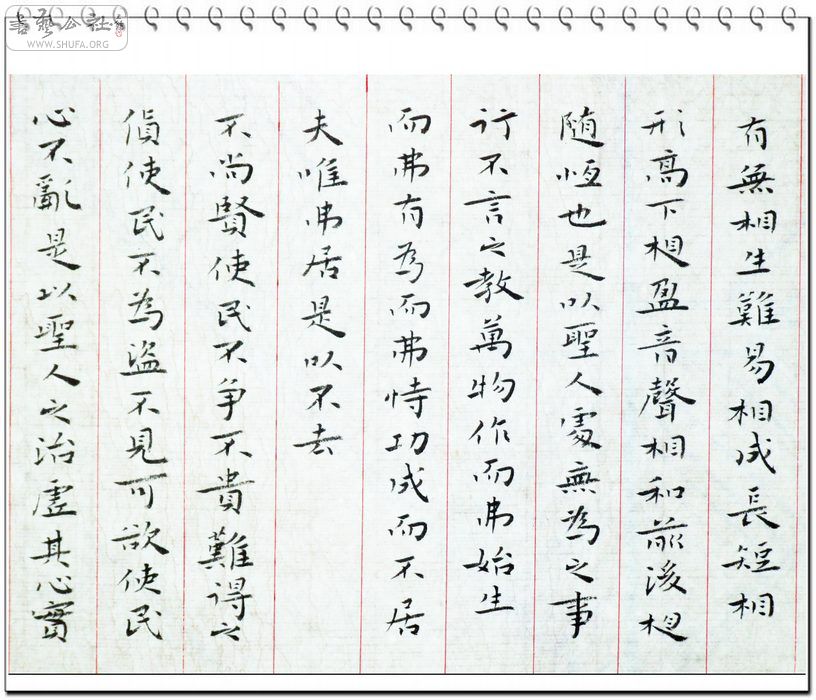 書藝公社
WWW.SHUFA.ORG
有無相生難易相成長短相
形高下相盈音聲相和前後相
随恆也是以聖人處無為之事
行不言之教萬物作而弗始生
而弗有為而弗恃功成而不居
夫唯弗居是以不去
不尚賢使民不争不貴難得之
貨使民不為盜不見可欲使民
心不亂是以聖人之治虛其心實